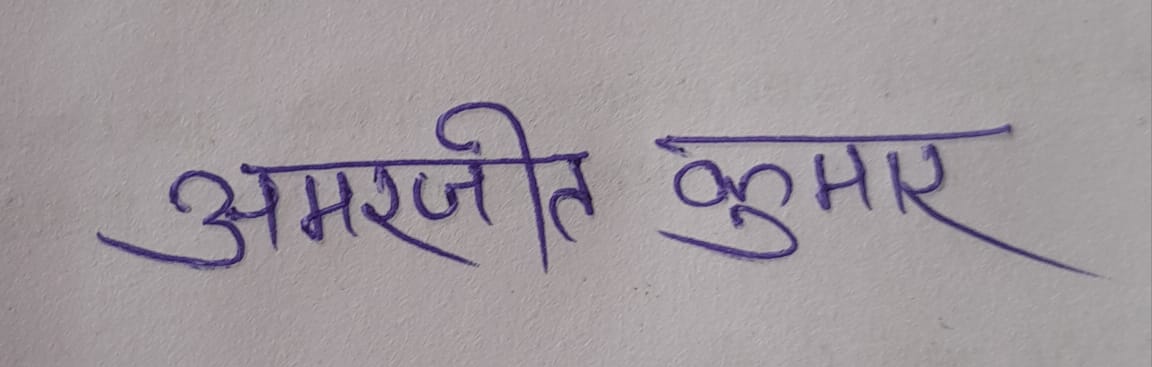 अमरजीत कुमार